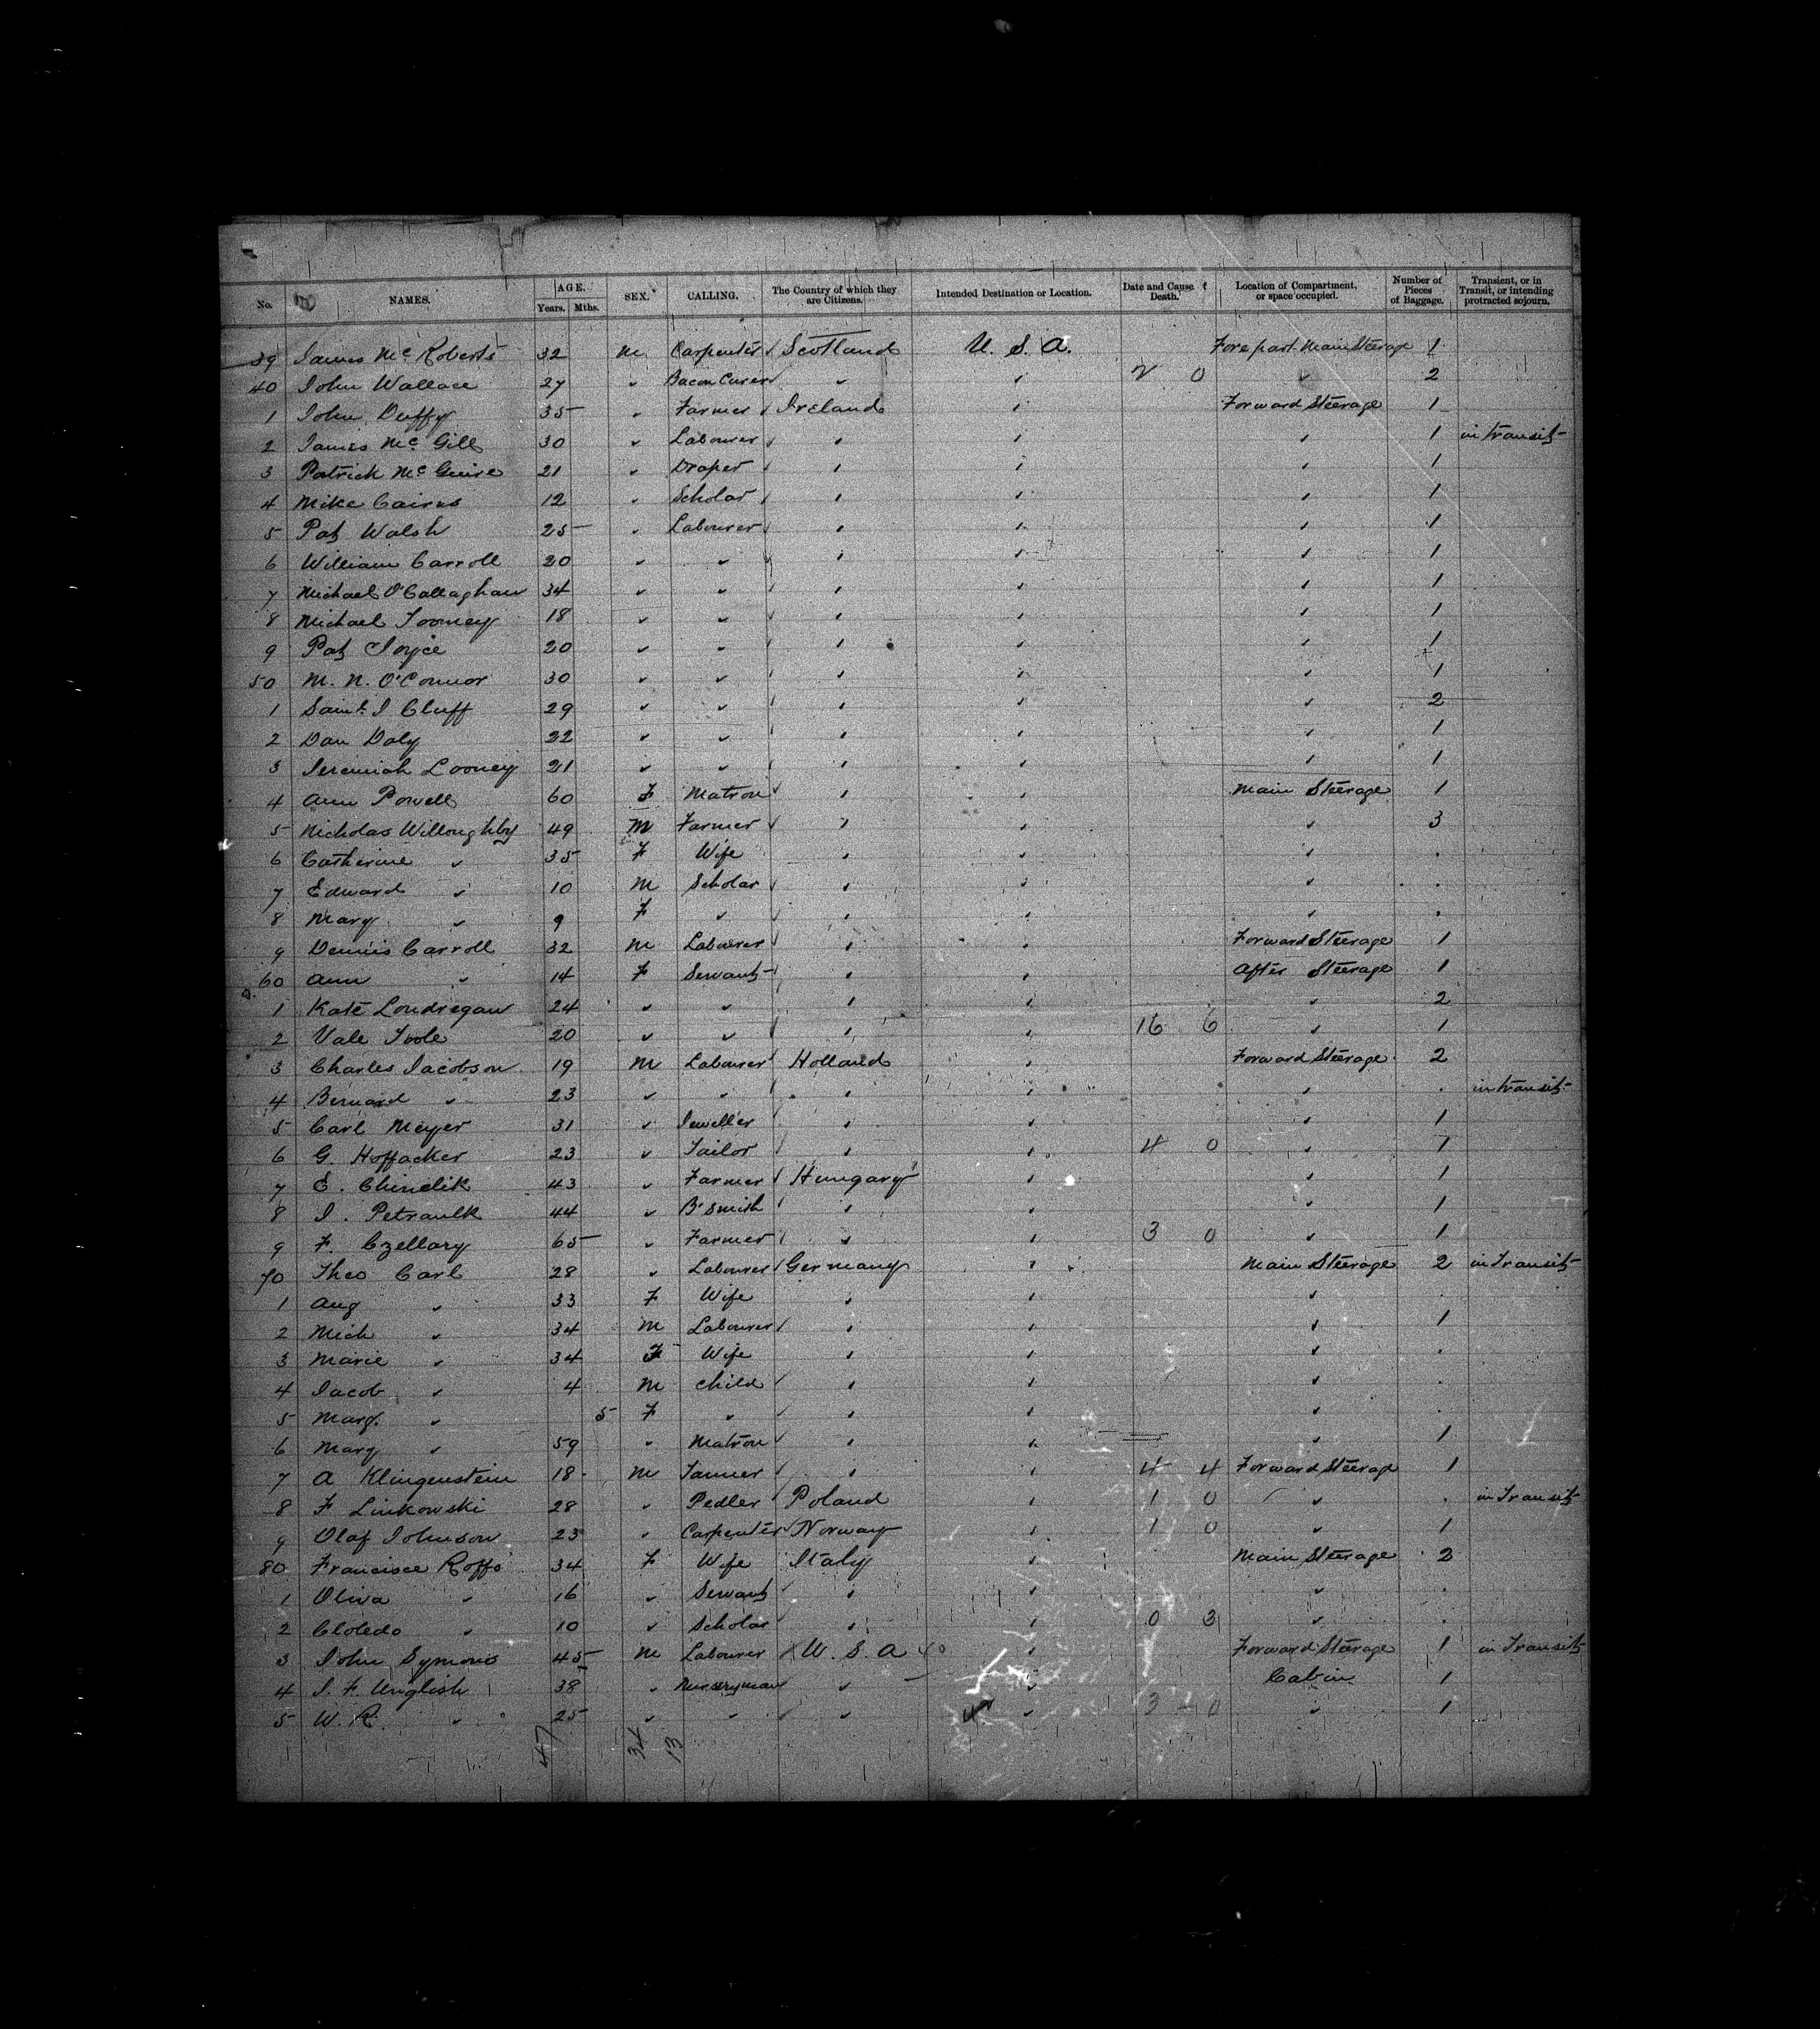 No. NAMES. AGE. Years. Mths. SEX. CALLING. The Country of which they are Citizens. Intended Destination or Location. Date and Cause Death. Location of Compartment, or space occupied. Number of Pieces of Baggage. Transient, or in Transit, or intending protracted sojourn.
39 James Mc Roberts 32 M Carpenter Scotland U. S. A. Fore part Main Steerage 1
40 John Wallace 27 " Bacon Curer " " 2 0 " 2
1 John Duffy 35 " Farmer Ireland " Forward Steerage 1
2 James Mc Gill 30 " Labourer " " " 1 in transit
3 Patrick Mc Guire 21 " Draper " " " 1
4 Mike Cairns 12 " Scholar " " " 1
5 Pat Walsh 25 " Labourer " " " 1
6 William Carroll 20 " " " " " 1
7 Michael O'Callaghan 34 " " " " " 1
8 Michael Toomey 18 " " " " " 1
9 Pat Joyce 20 " " " " " 1
50 M. N. O'Connor 30 " " " " " 1
1 Saml. J Cluff 29 " " " " " 2
2 Dan Daly 22 " " " " " 1
3 Jeremiah Looney 21 " " " " " 1
4 Ann Powell 60 F Matron " " Main Steerage 1
5 Nicholas Willoughby 49 M Farmer " " " 3
6 Catherine " 35 F Wife " " " .
7 Edward " 10 M Scholar " " " .
8 Mary " 9 F " " " " .
9 Dennis Carroll 32 M Labourer " " Forward Steerage 1
60 Ann " 14 F Servant " " After Steerage 1
1 Kate Londregan 24 " " " " " 2
2 Vale Toole 20 " " " " 16 6 " 1
3 Charles Jacobson 19 M Labourer Holland " Forward Steerage 2
4 Bernard " 23 " " " " " . in transit
5 Carl Meyer 31 " Jeweller " " " 1
6 G. Hoffacker 23 " Tailor " " 4 0 " 1
7 E. Chindlik 43 " Farmer Hungary " " 1
8 J. Petraulk 44 " B'smith " " " 1
9 F. Czellary 65 " Farmer " " 3 0 " 1
70 Theo Carl 28 " Labourer Germany " Main Steerage 2 in Transit
1 Aug " 33 F Wife " " " .
2 Mich " 34 M Labourer " " " 1
3 Marie " 34 F Wife " " " .
4 Jacob " 4 M Child " " " .
5 Marg. " 5 F " " " " .
6 Mary " 59 " Matron " " " 1
7 A Klingenstein 18 M Tanner " " 4 4 Forward Steerage 1
8 F Linkowski 28 " Pedler Poland " 1 0 " . in Transit
9 Olaf Johnson 23 " Carpenter Norway " 1 0 " 1
80 Francisce Roffo 34 F Wife Italy " Main Steerage 2
1 Oliva " 16 " Servant " " " .
2 Cloledo " 10 " Scholar " " 0 3 " .
3 John Symons 45 M Labourer U. S. A " Forward Steerage 1 in Transit
4 J. F. Unglish 38 " Nurseryman " " Cabin 1
5 W. R. " 25 " " " " 3 0 " 1
47 34 13